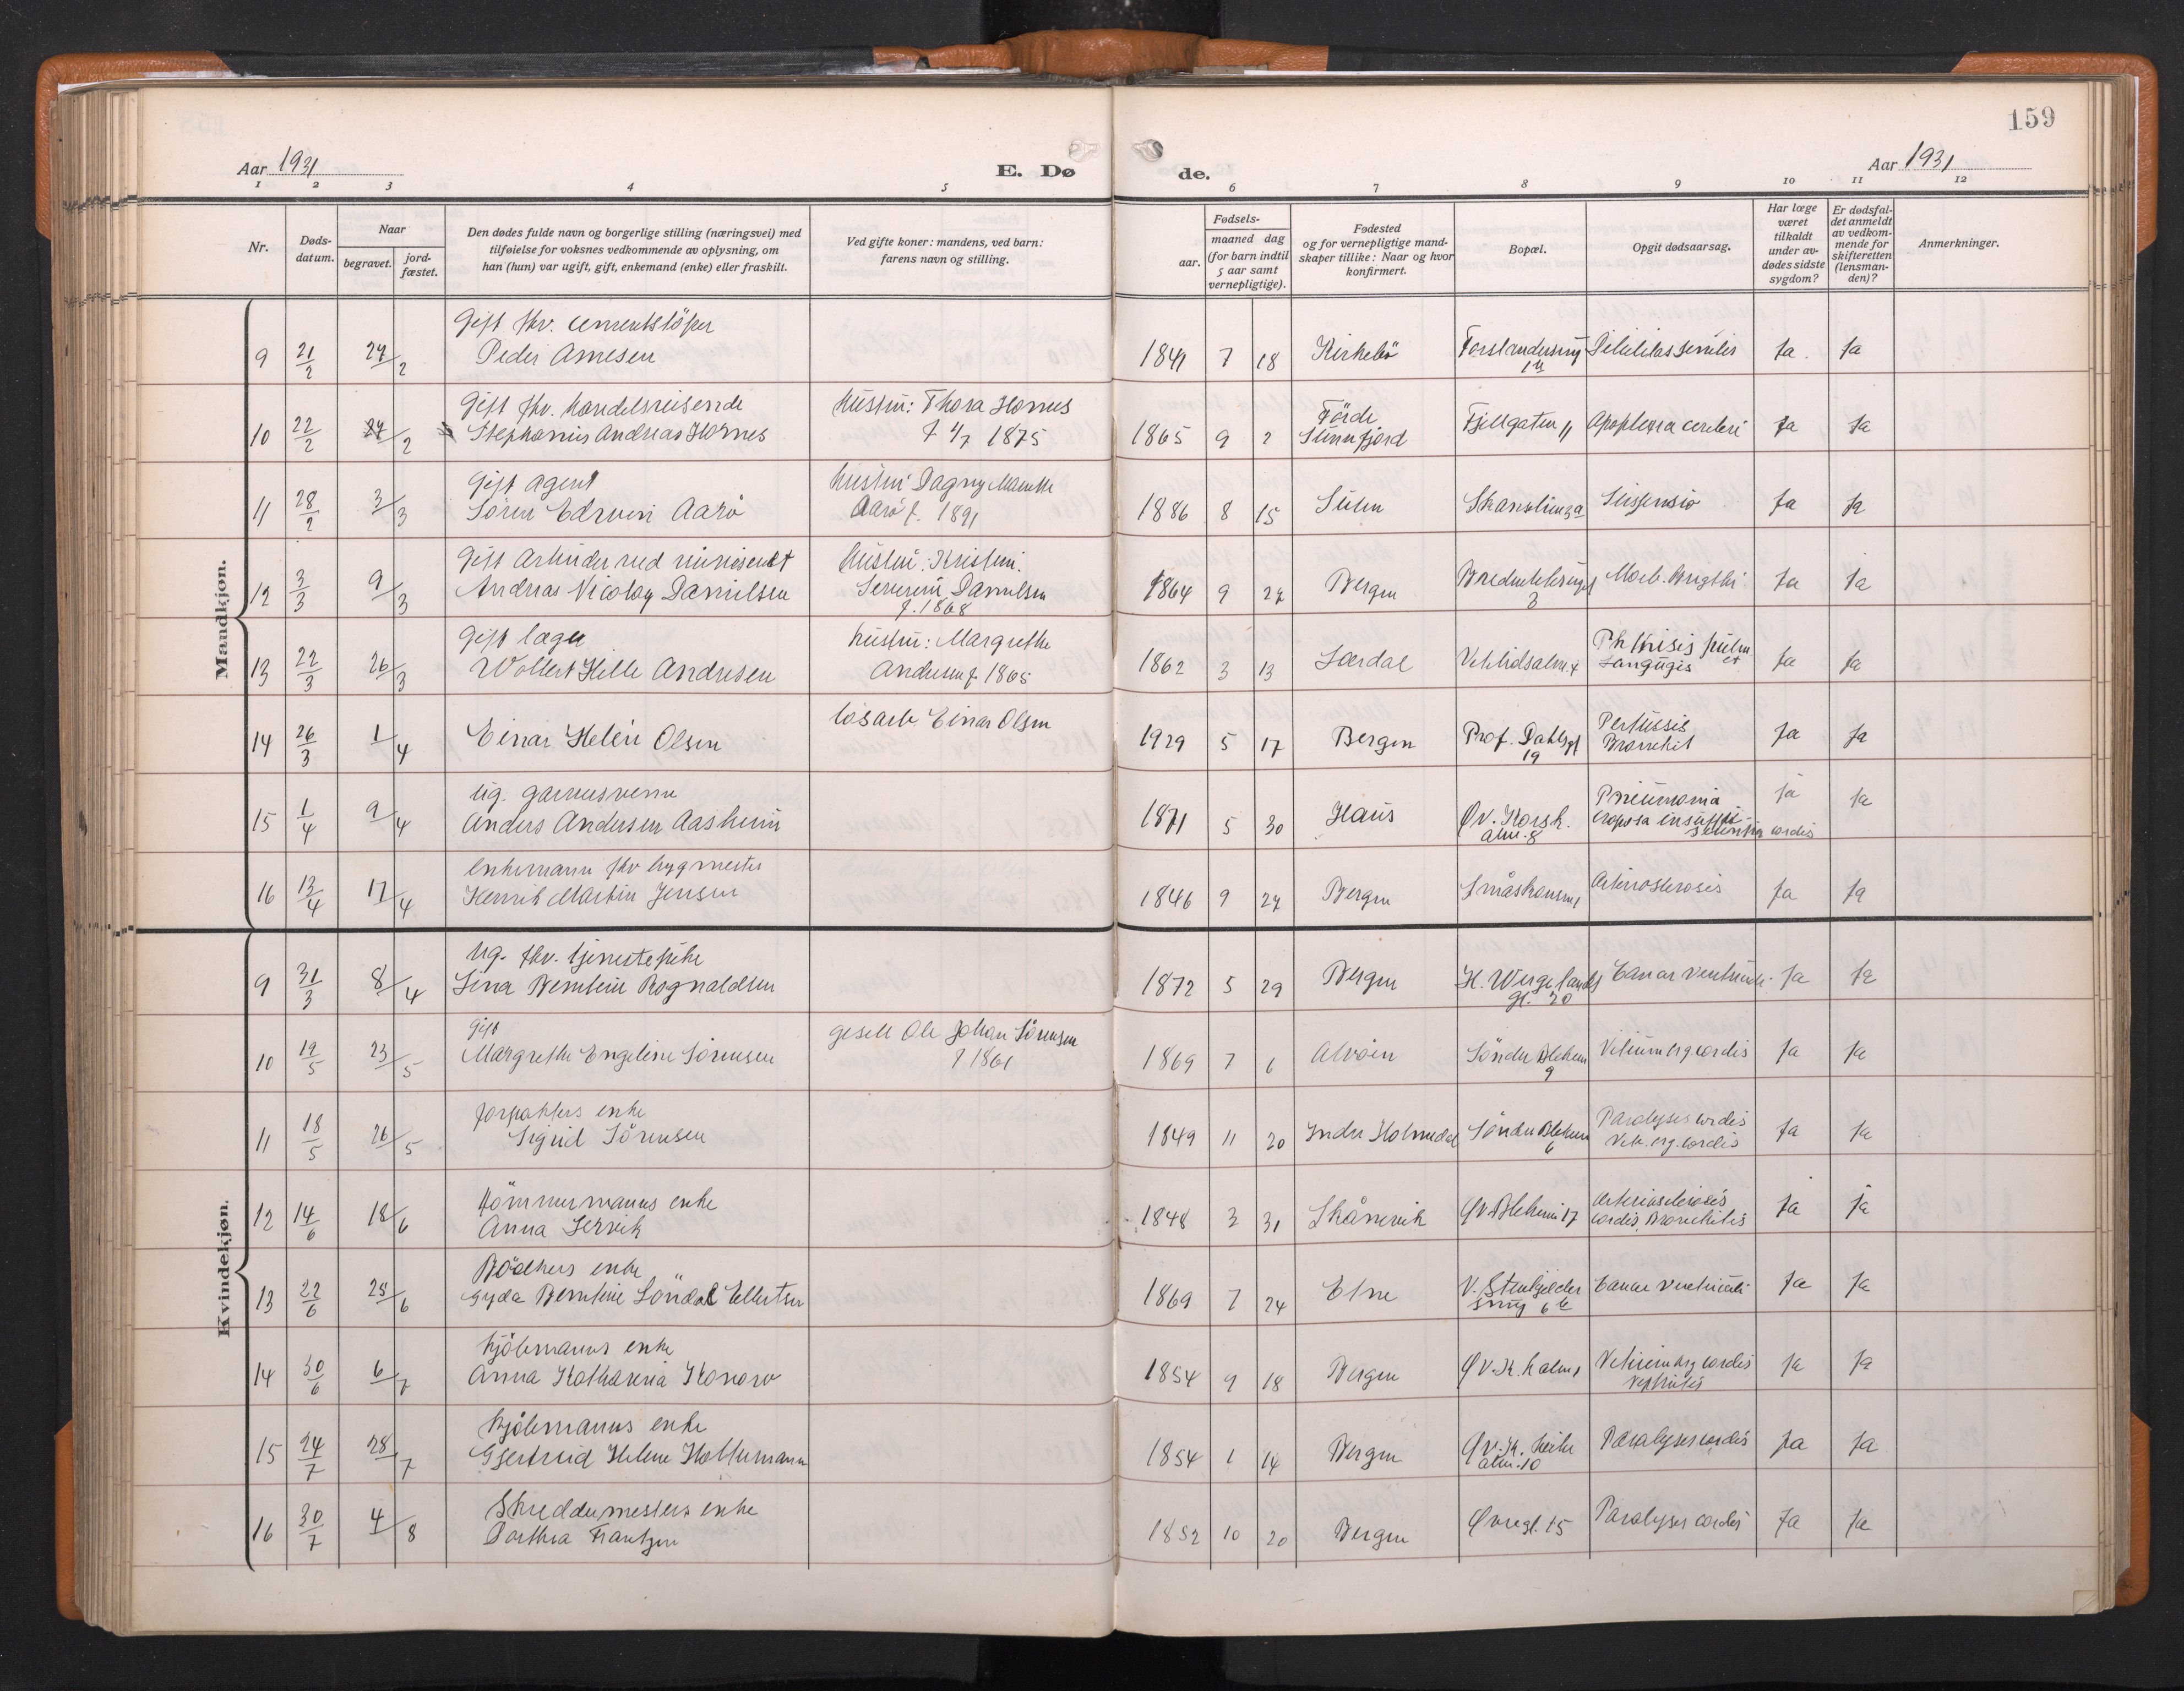 159
Aar 1931
E. Dø
de.
Aar 1931
1 2 3 4 5 6 7 8 9 10 11 12
Nr.
Døds-
datum.
Naar
begravet.
jord-
fæstet.
Den dødes fulde navn og borgerlige stilling (næringsvei) med
tilføielse for voksnes vedkommende av oplysning, om
han (hun) var ugift, gift, enkemand (enke) eller fraskilt.
Ved gifte koner: mandens, ved barn:
farens navn og stilling.
Fødsels-
aar.
maaned dag
(for barn indtil
5 aar samt
vernepligtige).
Fødested
og for vernepligtige mand-
skaper tillike: Naar og hvor
konfirmert.
Bopæl.
Opgit dødsaarsag.
Har læge
været
tilkaldt
under av-
dødes sidste
sygdom?
Er dødsfal-
det anmeldt
av vedkom-
mende for
skifteretten
(lensman-
den)?
Anmerkninger.
Mandkjøn.
Gift fhv. cementstöper
9 21/2 27/2 Peder Arnesen 1841 7 18 Kirkebö Ja. Ja
Gift fhv. handelsreisende Hustru: Thora Hornes Förde
10 22/2 27/2 Stephanus Andreas Hornes f 4/7 1875 1865 9 2 Sunnfjord Fjellgaten 11 Apoplexia cerebri Ja Ja
Gift agent Hustru Dagny
11 28/2 3/3 Sören Edwin Aarö Aarö f. 1891 1886 8 15 Sulen Suspensio Ja Ja
Gift Arbeider ved Hustru: Kristine
12 3/3 9/3 Andreas Nicolay Danielsen Severine Danielsen 1864 9 27 Bergen Morb. Brigthi Ja Ja
f. 1868 3
Gift læge hustru: Margrethe Phthisis pulm et
13 22/3 26/3 Wollert Hille Andresen Andresen f. 1865 1862 3 13 Lærdal Vetrlidsalm. 4 Ja Ja
løsarb Einar Olsen Pertussis
14 26/3 1/4 Einar Helén Olsen 1929 5 17 Bergen Prof. Dahls gt Bronchit Ja Ja
19
ug. Pneumonia
15 1/4 9/4 Anders Andersen Aasheim 1871 5 30 Haus Øv. Korsk. cordis Ja Ja
alm. 8
Enkemann fhv bygmester
16 13/4 17/4 Henrik Martin Jensen 1846 9 27 Bergen Arteriosclerosis Ja Ja
Kvindekjøn.
Ug. fhv. tjenestepike
9 31/3 8/4 Lina Berntine Rognaldsen 1872 5 29 Bergen H. Wergelands Cancer ventriculi Ja Ja
gt. 20
Gift gesell Ole Johan Sörensen
10 19/5 23/5 Margrethe Engeline Sörensen f 1861 1869 7 6 Alvöen Söndre Blekevei Vitium org cordis Ja Ja
9
Forpakters enke Paralysis cordis
11 18/5 26/5 Sigrid Sörensen 1849 11 20 Indre Holmedal Söndre Blekevei Vit. org. cordis Ja Ja
6
Tömmermanns enke Arteriosclerosis
12 14/6 18/6 Anna Servik 1848 3 31 Skånevik Øv Blekevei 17 cordis, Bronchitis Ja Ja
Bödkers enke
13 22/6 25/6 Gyda Berntine Söndal Ellertsen 1869 7 24 Etne V. Stenkjelder Cancer Ventriculi Ja Ja
smug 6 b
Kjöbmanns enke
14 30/6 6/7 Anna Katharina Konow 1854 9 18 Bergen Øv. K. kalm 1 Vitium org cordis Ja Ja
Nephritis
Kjöbmanns enke
15 24/7 28/7 Gjertrud Helene Holtermann 1854 1 14 Bergen Øv. K. kirke Paralysis cordis Ja Ja
alm. 10
Skreddermesters enke
16 30/7 4/8 Dorthea Frantzen 1852 10 20 Bergen Øvregt. 15 Paralysis cordis Ja Ja